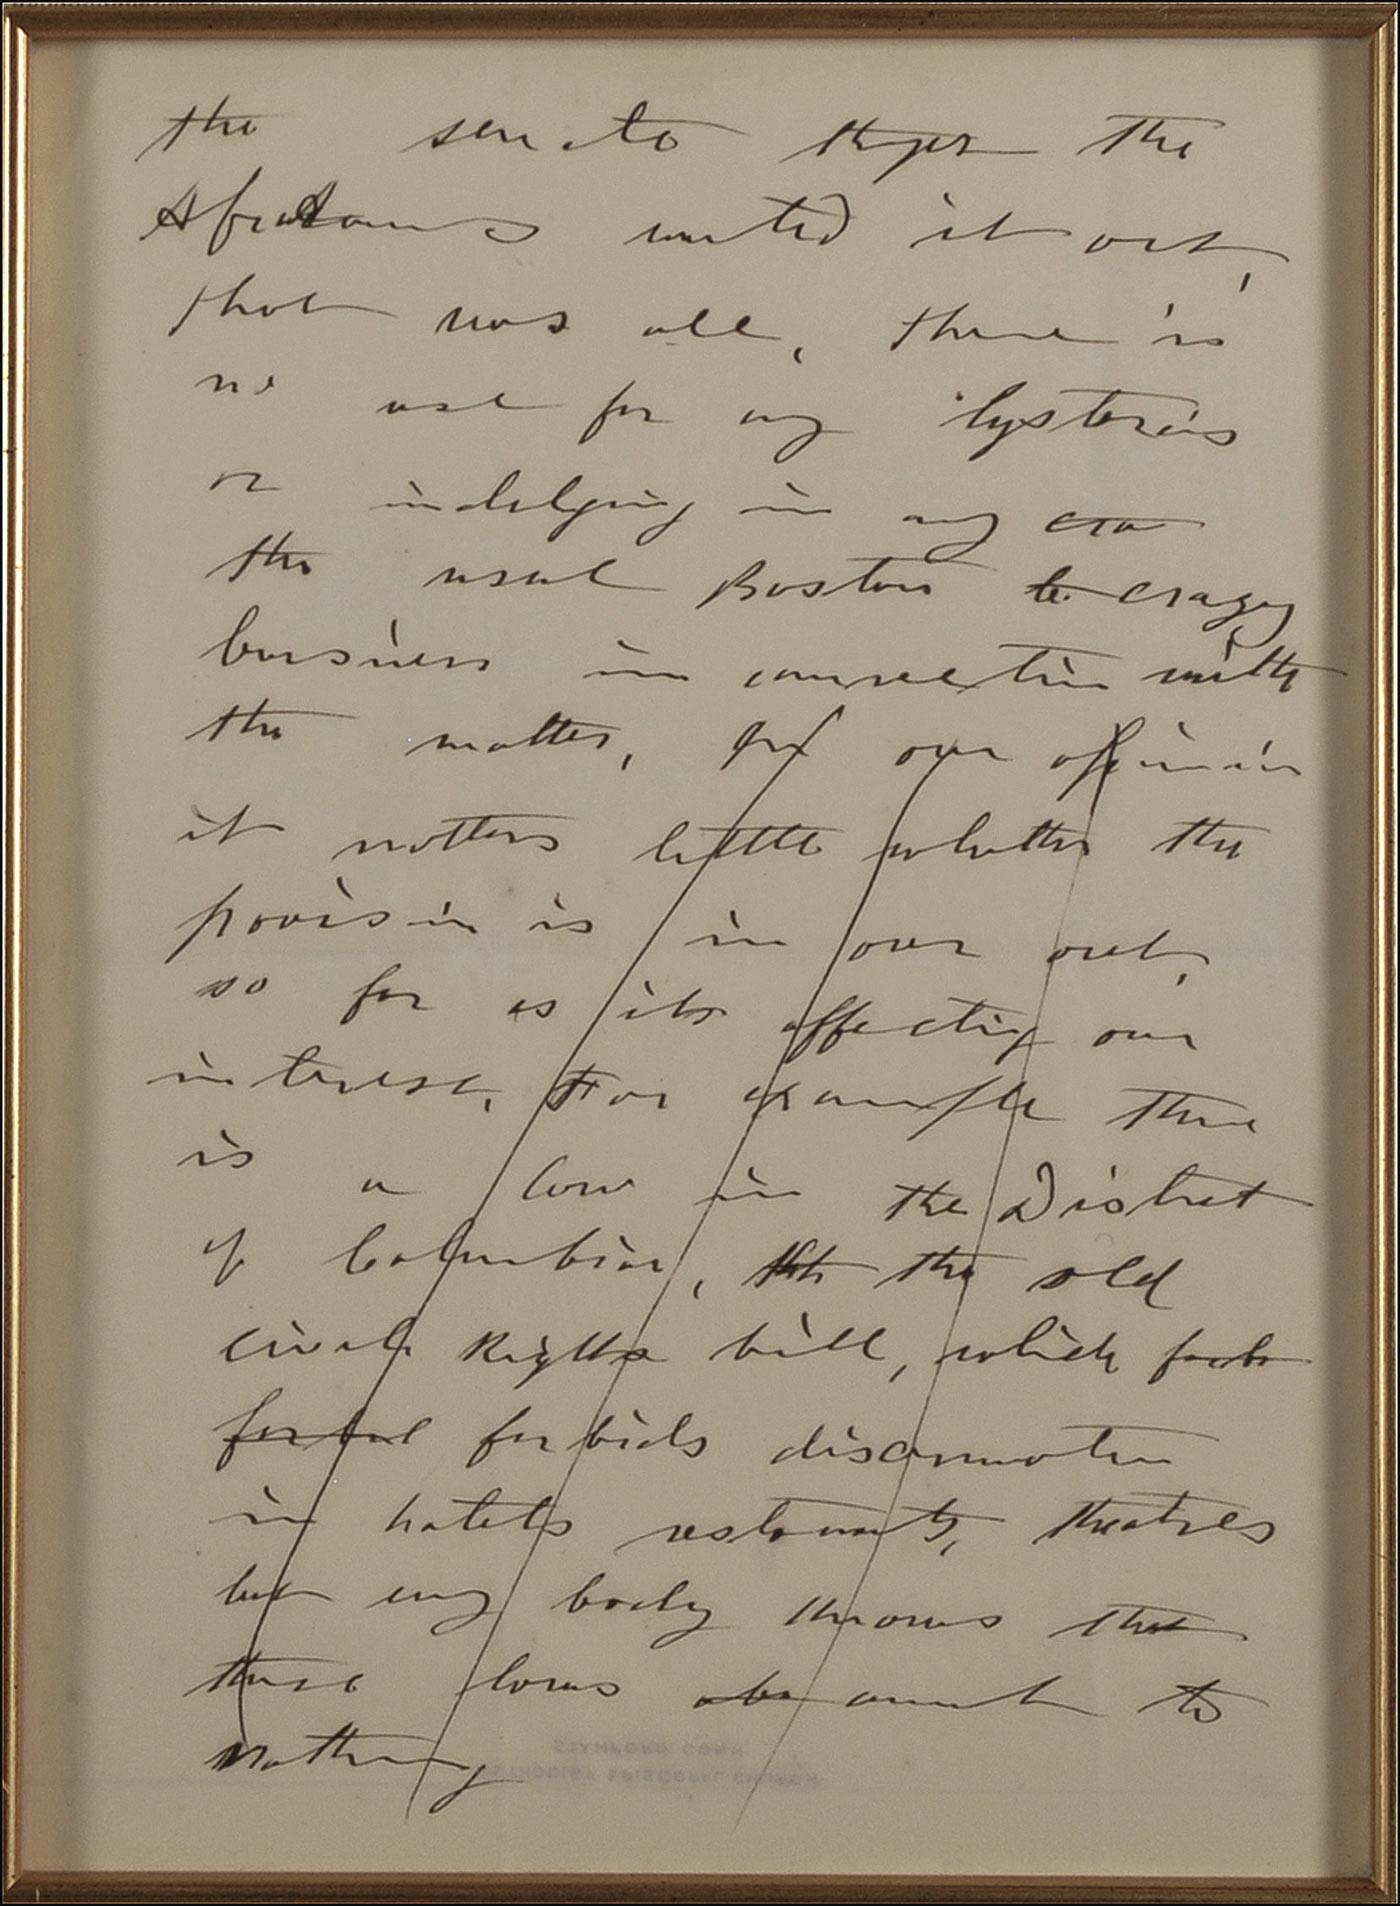 the senate thgot the
Afroams wanted it out,
that was all, there is
no use for any hysterics
or indulging in any cra
the usual Boston be crazy
business in connection with
the matter, In our opinion
it matters little whether the
provision is in over out,
so far as its affecting our
interest, For example there
is a law in the District
of Columbia, th the old
Civil Rights bill, which forb
forbid forbids discrimination
in hotels restaurants, theatres
but any body knows that
these laws amount to
nothing